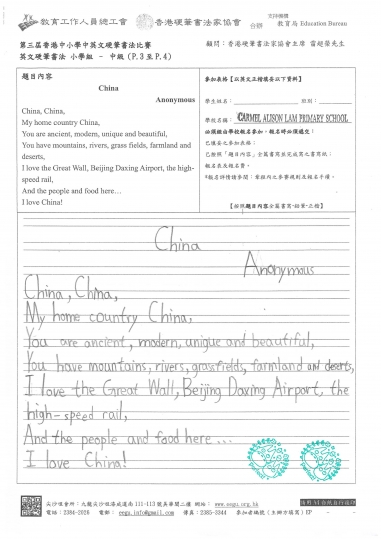 教育工作人員總工會 香港硬筆書法家協會 合辦
支持機構
教育局 Education Bureau
第三屆香港中小學中英文硬筆書法比賽
顧問：香港硬筆書法家協會主席
英文硬筆書法 小學組 - 中級 (P.3 至 P.4)
題目內容
China
Anonymous
China, China,
My home country China,
You are ancient, modern, unique and beautiful,
You have mountains, rivers, grass fields, farmland and
deserts,
I love the Great Wall, Beijing Daxing Airport, the high-
speed rail,
And the people and food here…
I love China!
參加表格【以英文正楷填妥以下資料】
學生姓名： 班別：
學校名稱： CARMEL ALISON LAM PRIMARY SCHOOL
必須經由學校報名參加，報名時必須遞交：
已填妥之參加表格；
已按照「題目內容」全篇書寫並完成習之書寫紙；
報名表及報名費。
China
Anonymous
China, China,
My home country China,
You are ancient, modern, unique and beautiful,
You have mountains, rivers, grassfields, farmland and deserts,
I love the Great Wall, Beijing Daxing Airport, the
high-speed rail,
And the people and food here...
I love China!
電話：2384-2026 電郵：eegu.info@gmail.com 傳真：2385-3344 參加者編號（主辦方填寫）EP - -